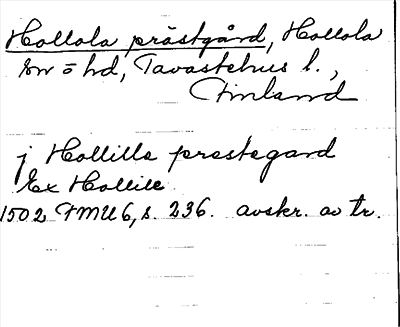 Hollola prästgård, Hollola
sn o hd, Tavastehus l.,
Finland
j Hollille prestegard
Ex Hollill
1502 FMU 6, s. 236. avskr. av tr.